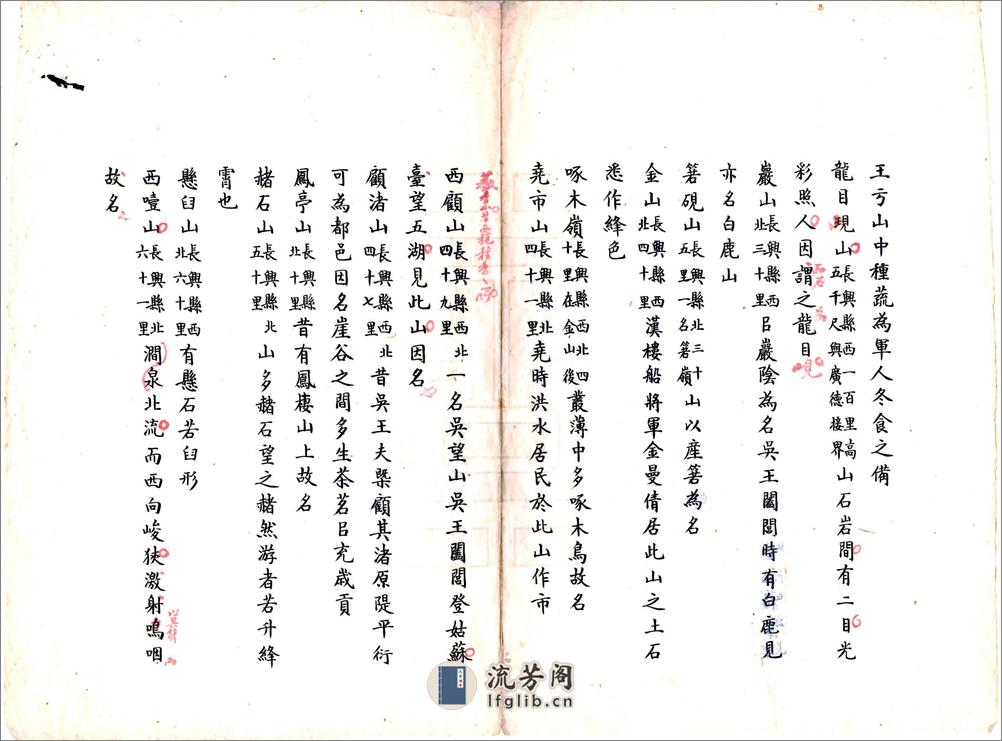 王于山中種蔬為軍人冬食之備
龍目現山長興縣西一百里高五千尺與廣德接界山石岩間有二目光
彩照人因謂之龍目峴
巖山長興縣西北三十里㠯巖陰為名吳王闔閭時有白鹿見
亦名白鹿山
箬硯山長興縣北三十五里一名箬嶺山以產箬為名
金山長興縣西北四十里漢樓船將軍金曼倩居此山之土石
悉作絳色
啄木嶺長興縣西北四十里在金山後叢薄中多啄木鳥故名
堯市山長興縣西北四十一里堯時洪水居民於此山作市
西顧山長興縣西北四十九里一名吳望山吳王闔閭登姑蘇
臺望五湖見此山因名
顧渚山長興縣西北四十七里昔吳王夫槩顧其渚原隄平衍
可為都邑因名崖谷之間多生茶茗㠯充歲貢
鳳亭山長興縣西北十里昔有鳳棲山上故名
赭石山長興縣北五十里山多赭石望之赭然游者若升絳
霄也
懸臼山長興縣西北六十里有懸石若臼形
西噎山長興縣西北六十一里澗泉北流而西向峻狹激射鳴咽
故名
流芳阁
lfglib.cn